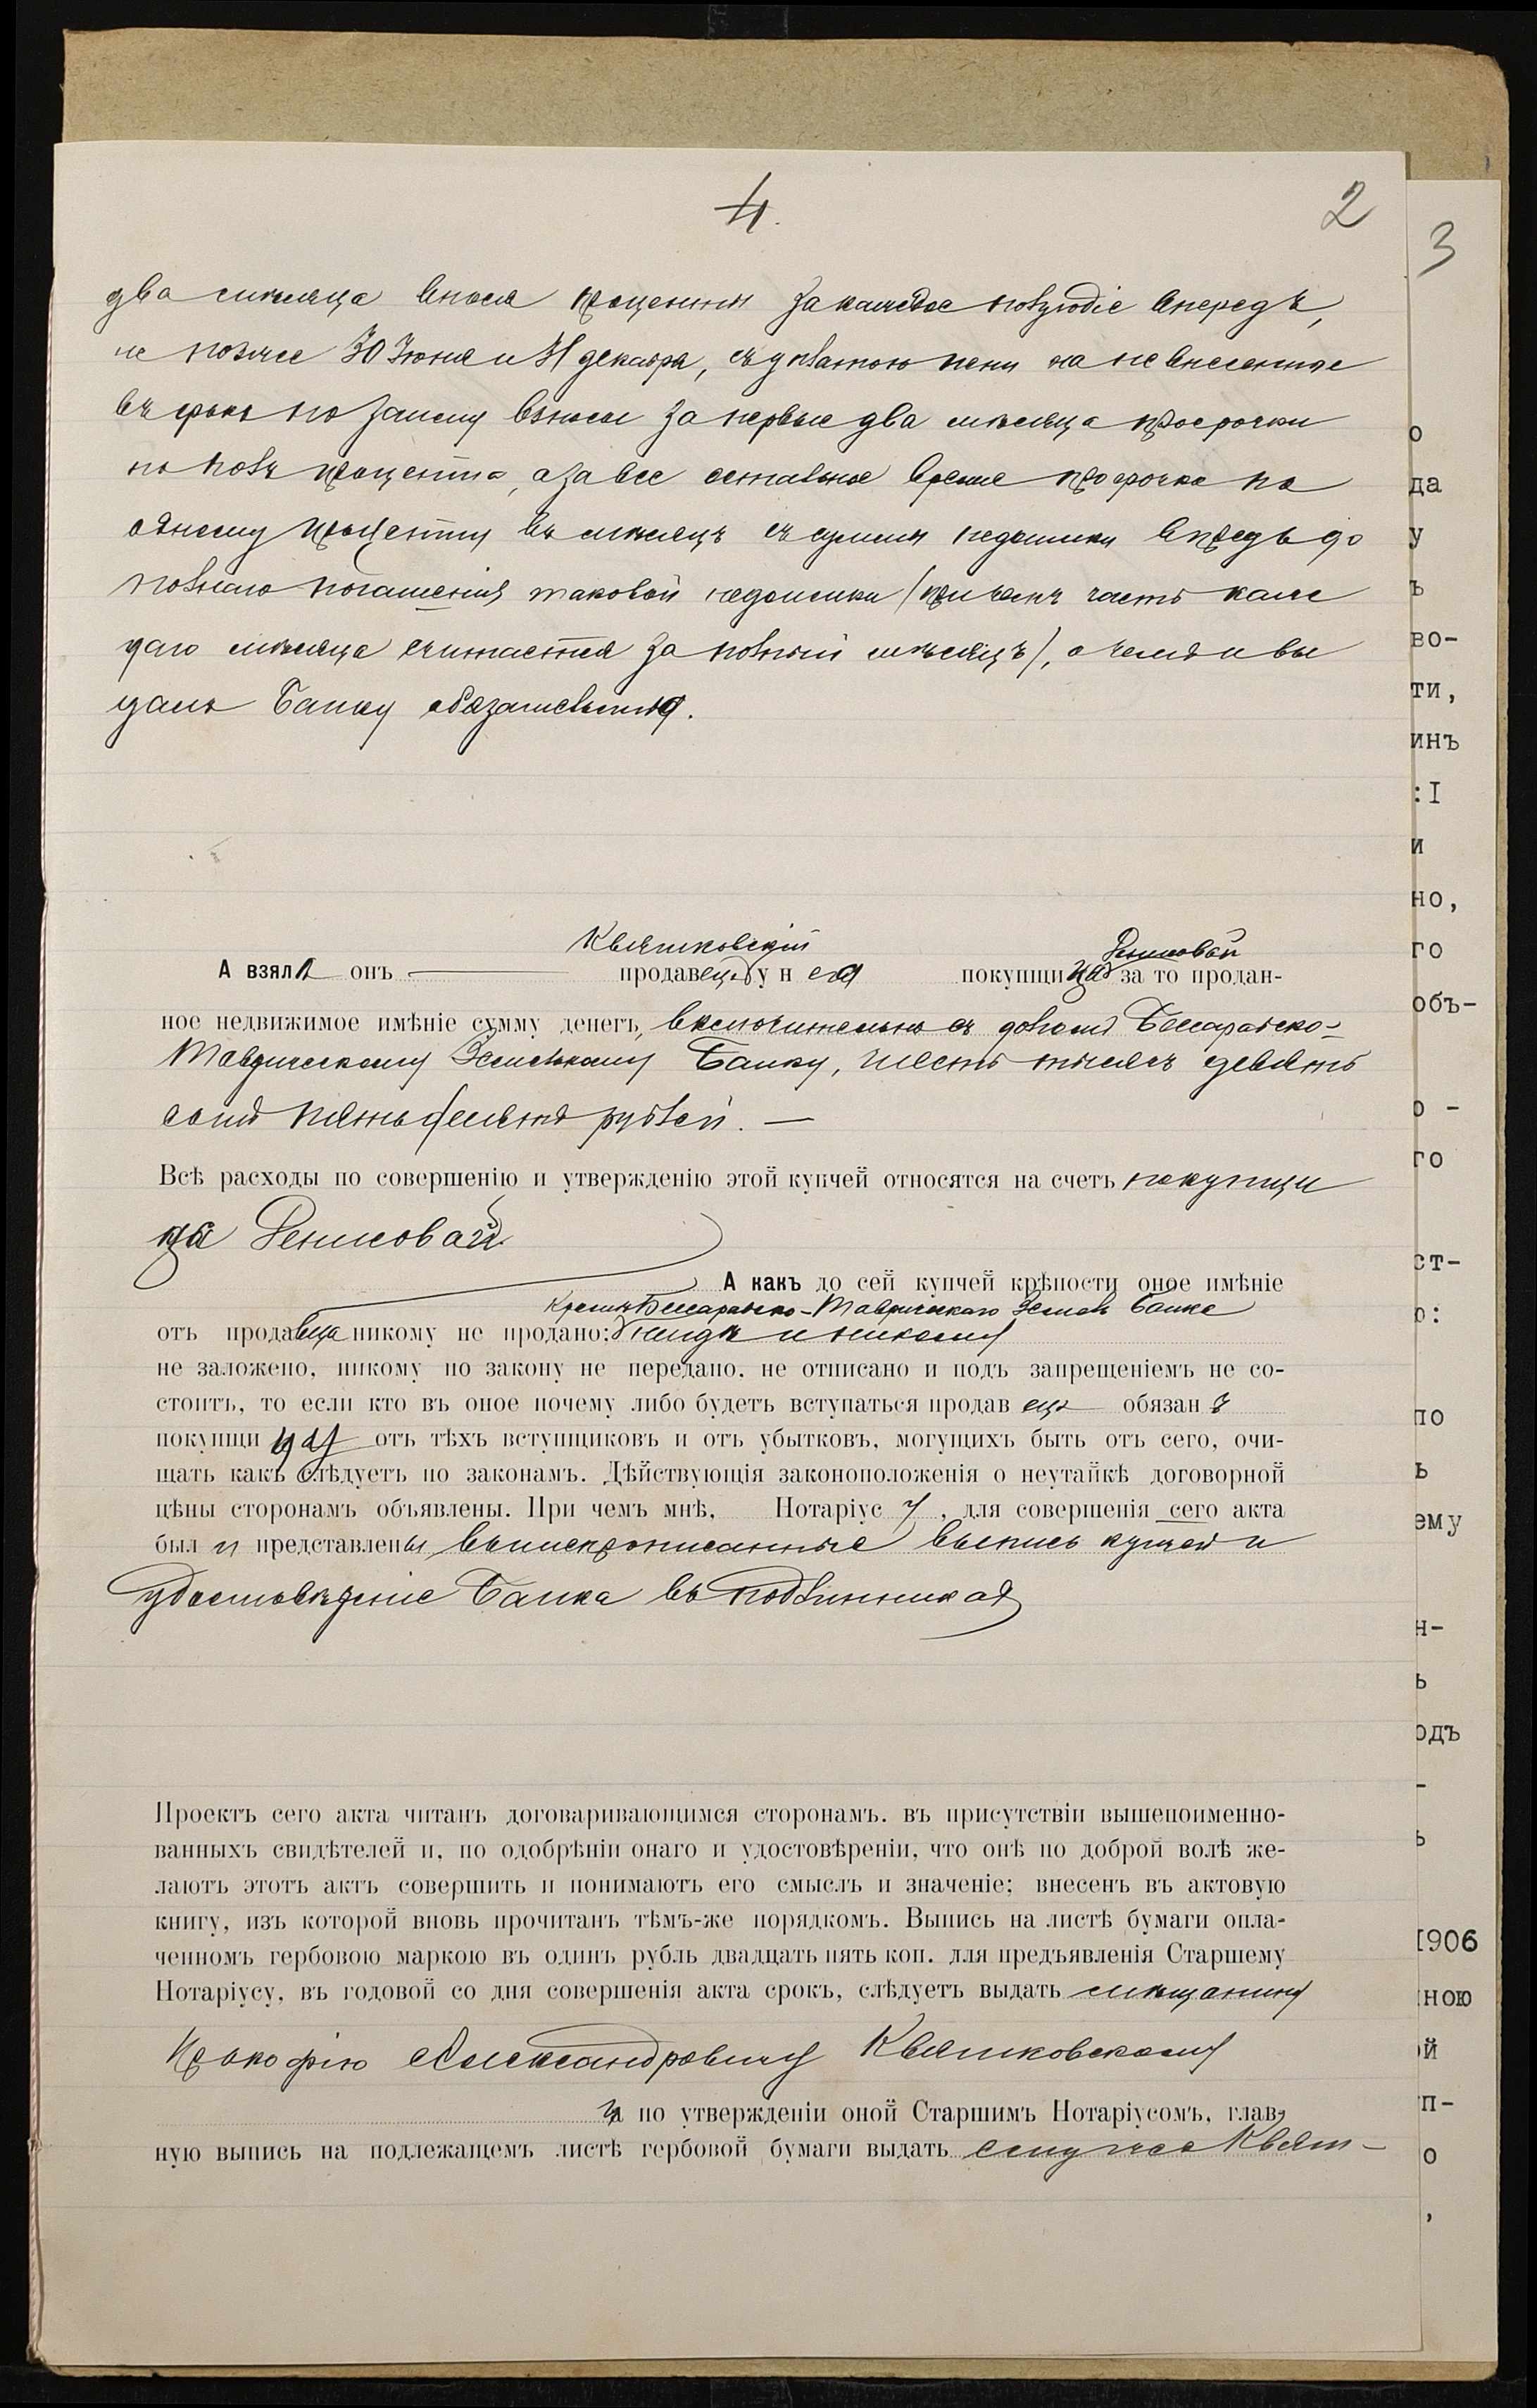 4.
2
3
два мѣсяца внося проценты за каждое полугодіе впередъ,
не позже 30 Іюня и 31 декабря, съ уплатою пени на не внесенные
въ срокъ по займу взносы за первые два мѣсяца просрочки
по полъ процента, а за все остальное время просрочки по
одному проценту въ мѣсяцъ съ суммы недоимки впредь до
полнаго погашенія таковой недоимки (при чемъ часть каж
даго мѣсяца считается за полный мѣсяцъ), о чемъ и вы
далъ Банку обязательство.
Квятковскій
Денисовой
А взялъ онъ продавецъ у н ея покупщицы за то продан-
ное недвижимое имѣніе сумму денегъ, включительно съ долгомъ Бессарабско-
Таврическому Земельному Банку, шесть тысячъ девять
сотъ пятьдесятъ рублей. —
Всѣ расходы по совершенію и утвержденію этой купчей относятся на счетъ покупщи
цы Денисовой.
А какъ до сей купчей крѣпости оное имѣніе
кромѣ Бессарабско-Таврическаго Земель Банка
отъ продавца никому не продано: нигдѣ и никому
не заложено, никому по закону не передано, не отписано и подъ запрещеніемъ не со-
стоитъ, то если кто въ оное почему либо будетъ вступаться продав ецъ обязан ъ
покупщи цу отъ тѣхъ вступщиковъ и отъ убытковъ, могущихъ быть отъ сего, очи-
щать какъ слѣдуетъ по законамъ. Дѣйствующія законоположенія о неутайкѣ договорной
цѣны сторонамъ объявлены. При чемъ мнѣ, Нотаріус у , для совершенія сего акта
был и представлены вышепрописанные выпись купчей и
удостовѣреніе Банка въ подлинникахъ
Проектъ сего акта читанъ договаривающимся сторонамъ. въ присутствіи вышепоименно-
ванныхъ свидѣтелей и, по одобрѣніи онаго и удостовѣреніи, что онѣ по доброй волѣ же-
лаютъ этотъ актъ совершить и понимаютъ его смыслъ и значеніе; внесенъ въ актовую
книгу, изъ которой вновь прочитанъ тѣмъ-же порядкомъ. Выпись на листѣ бумаги опла-
ченномъ гербовою маркою въ одинъ рубль двадцать пять коп. для предъявленія Старшему
Нотаріусу, въ годовой со дня совершенія акта срокъ, слѣдуетъ выдать мѣщанину
Прокофію Александровичу Квятковскому
а по утвержденіи оной Старшимъ Нотаріусомъ, глав-
ную выпись на подлежащемъ листѣ гербовой бумаги выдать ему же Квят-
о
да
у
ъ
во-
ти,
инъ
:I
и
но,
го
объ-
о -
го
ст-
о:
по
ь
ему
н-
ь
одъ
-
ь
I906
ною
ой
п-
о
,